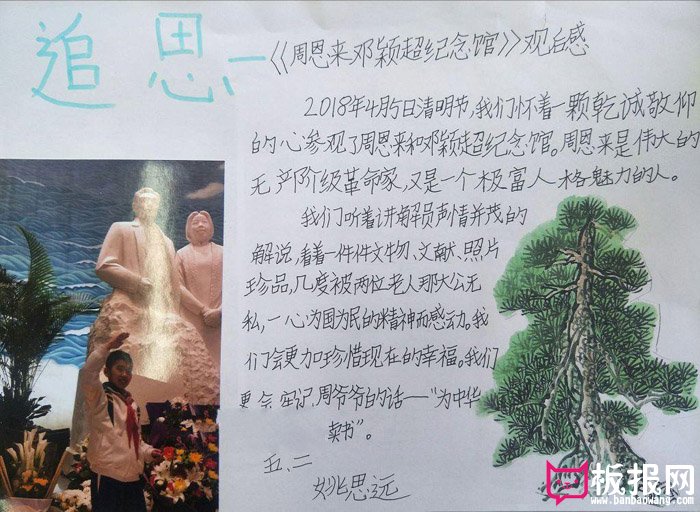 追思—《周恩来邓颖超纪念馆》观后感
2018年4月5日清明节,我们怀着一颗乾诚敬仰
的心参观了周恩来和邓颖超纪念馆。周恩来是伟大的
无产阶级革命家,又是一个极富人格魅力的人。
我们听着讲解员声情并茂的
解说,看着一件件文物、文献、照片
珍品,几度被两位老人那大公无
私,一心为国为民的精神而感动。我
们会更加珍惜现在的幸福。我们
更会牢记周爷爷的话——“为中华
卖书”。
五、二
姚思远
板报网
www.banbaowang.com